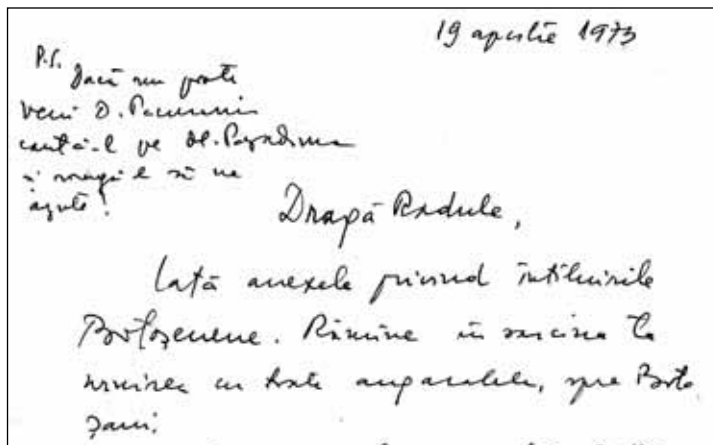 19 aprilie 1973
P.S.
Dacă nu poate
veni D.
caută-l pe Al. Papadima
și roagă-l să ne
ajute!
Dragă Radule,
Iată anexele privind întîlnirile
Botoșenene. Rămîne în sarcina ta
venirea cu toate angaralele, spre Boto
șani.